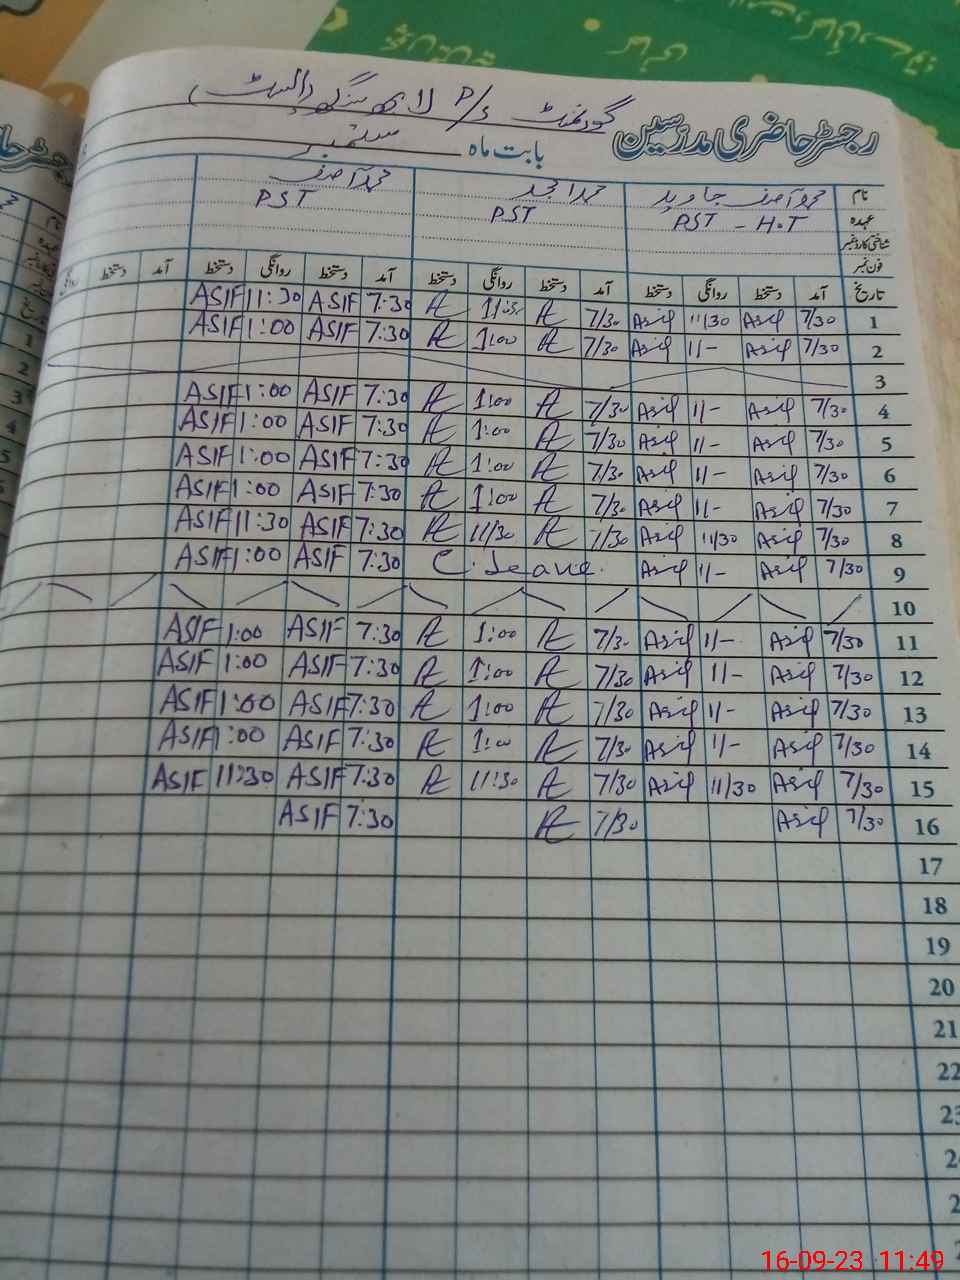 رجسٹر حاضری مدرسین گورنمنٹ P/s
بابت ماہ ستمبر
نام محمد آصف جاوید محمد امجد محمد آصف
عہدہ PST - H.T PST PST
شناختی کارڈ نمبر
فون نمبر
تاریخ آمد دستخط روانگی دستخط آمد دستخط روانگی دستخط آمد دستخط روانگی دستخط آمد دستخط
1 7/30 Asif 11/30 Asif 7/30 A 11:30 A 7:30 ASIF 11:30 ASIF
2 7/30 Asif 1/- Asif 7/30 A 1:00 A 7:30 ASIF 1:00 ASIF
3
4 7/30 Asif 1/- Asif 7/30 A 1:00 A 7:30 ASIF 1:00 ASIF
5 7/30 Asif 1/- Asif 7/30 A 1:00 A 7:30 ASIF 1:00 ASIF
6 7/30 Asif 1/- Asif 7/30 A 1:00 A 7:30 ASIF 1:00 ASIF
7 7/30 Asif 1/- Asif 7/30 A 1:00 A 7:30 ASIF 1:00 ASIF
8 7/30 Asif 11/30 Asif 7/30 A 11/30 A 7:30 ASIF 11:30 ASIF
9 7/30 Asif 1/- Asif C. Leave. 7:30 ASIF 1:00 ASIF
10
11 7/30 Asif 1/- Asif 7/30 A 1:00 A 7:30 ASIF 1:00 ASIF
12 7/30 Asif 1/- Asif 7/30 A 1:00 A 7:30 ASIF 1:00 ASIF
13 7/30 Asif 1/- Asif 7/30 A 1:00 A 7:30 ASIF 1:00 ASIF
14 7/30 Asif 1/- Asif 7/30 A 1:00 A 7:30 ASIF 1:00 ASIF
15 7/30 Asif 11/30 Asif 7/30 A 11:30 A 7:30 ASIF 11:30 ASIF
16 7/30 Asif 7/30 A 7:30 ASIF
17
18
19
20
21
22
23
16-09-23 11:49